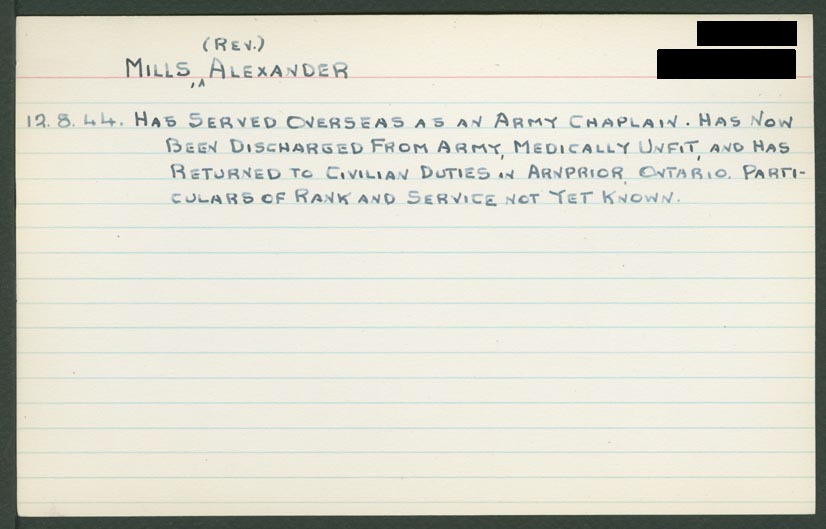 (REV.)
MILLS, ^ ALEXANDER
12.8.44. HAS SERVED OVERSEAS AS AN ARMY CHAPLAIN. HAS NOW
BEEN DISCHARGED FROM ARMY, MEDICALLY UNFIT, AND HAS
RETURNED TO CIVILIAN DUTIES IN ARNPRIOR, ONTARIO. PARTI-
CULARS OF RANK AND SERVICE NOT YET KNOWN.